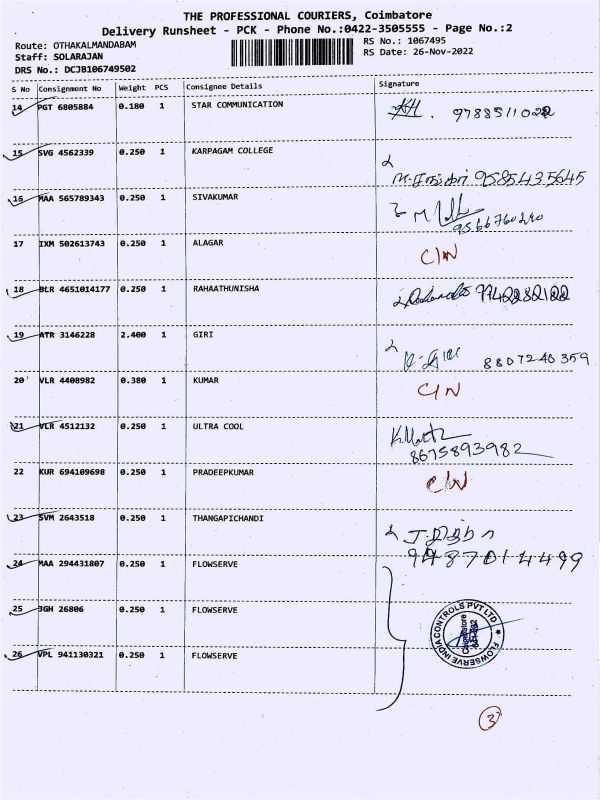 THE PROFESSIONAL COURIERS, Coimbatore
Delivery Runsheet - PCK - Phone No.:0422-3505555 - Page No.:2
Route: OTHAKALMANDABAM
RS No.: 1067495
Staff: SOLARAJAN
RS Date: 26-Nov-2022
DRS No.: DCJB106749502
S No Consignment No Weight PCS Consignee Details Signature
14 PGT 6805884 0.180 1 STAR COMMUNICATION
15 SVG 4562339 0.250 1 KARPAGAM COLLEGE
9585435645
16 MAA 565789343 0.250 1 SIVAKUMAR
9566760240
17 IXM 502613743 0.250 1 ALAGAR
C/N
18 BLR 4651014177 0.250 1 RAHAATHUNISHA
19 ATR 3146228 2.400 1 GIRI
8807240359
20 VLR 4408982 0.380 1 KUMAR
C/N
21 VLR 4512132 0.250 1 ULTRA COOL
8675893982
22 KUR 694109698 0.250 1 PRADEEPKUMAR
C/N
23 SVM 2643518 0.250 1 THANGAPICHANDI
9487014499
24 MAA 294431807 0.250 1 FLOWSERVE
25 JGH 26806 0.250 1 FLOWSERVE
FLOWSERVE INDIA CONTROLS PVT LTD
26 VPL 941130321 0.250 1 FLOWSERVE
3